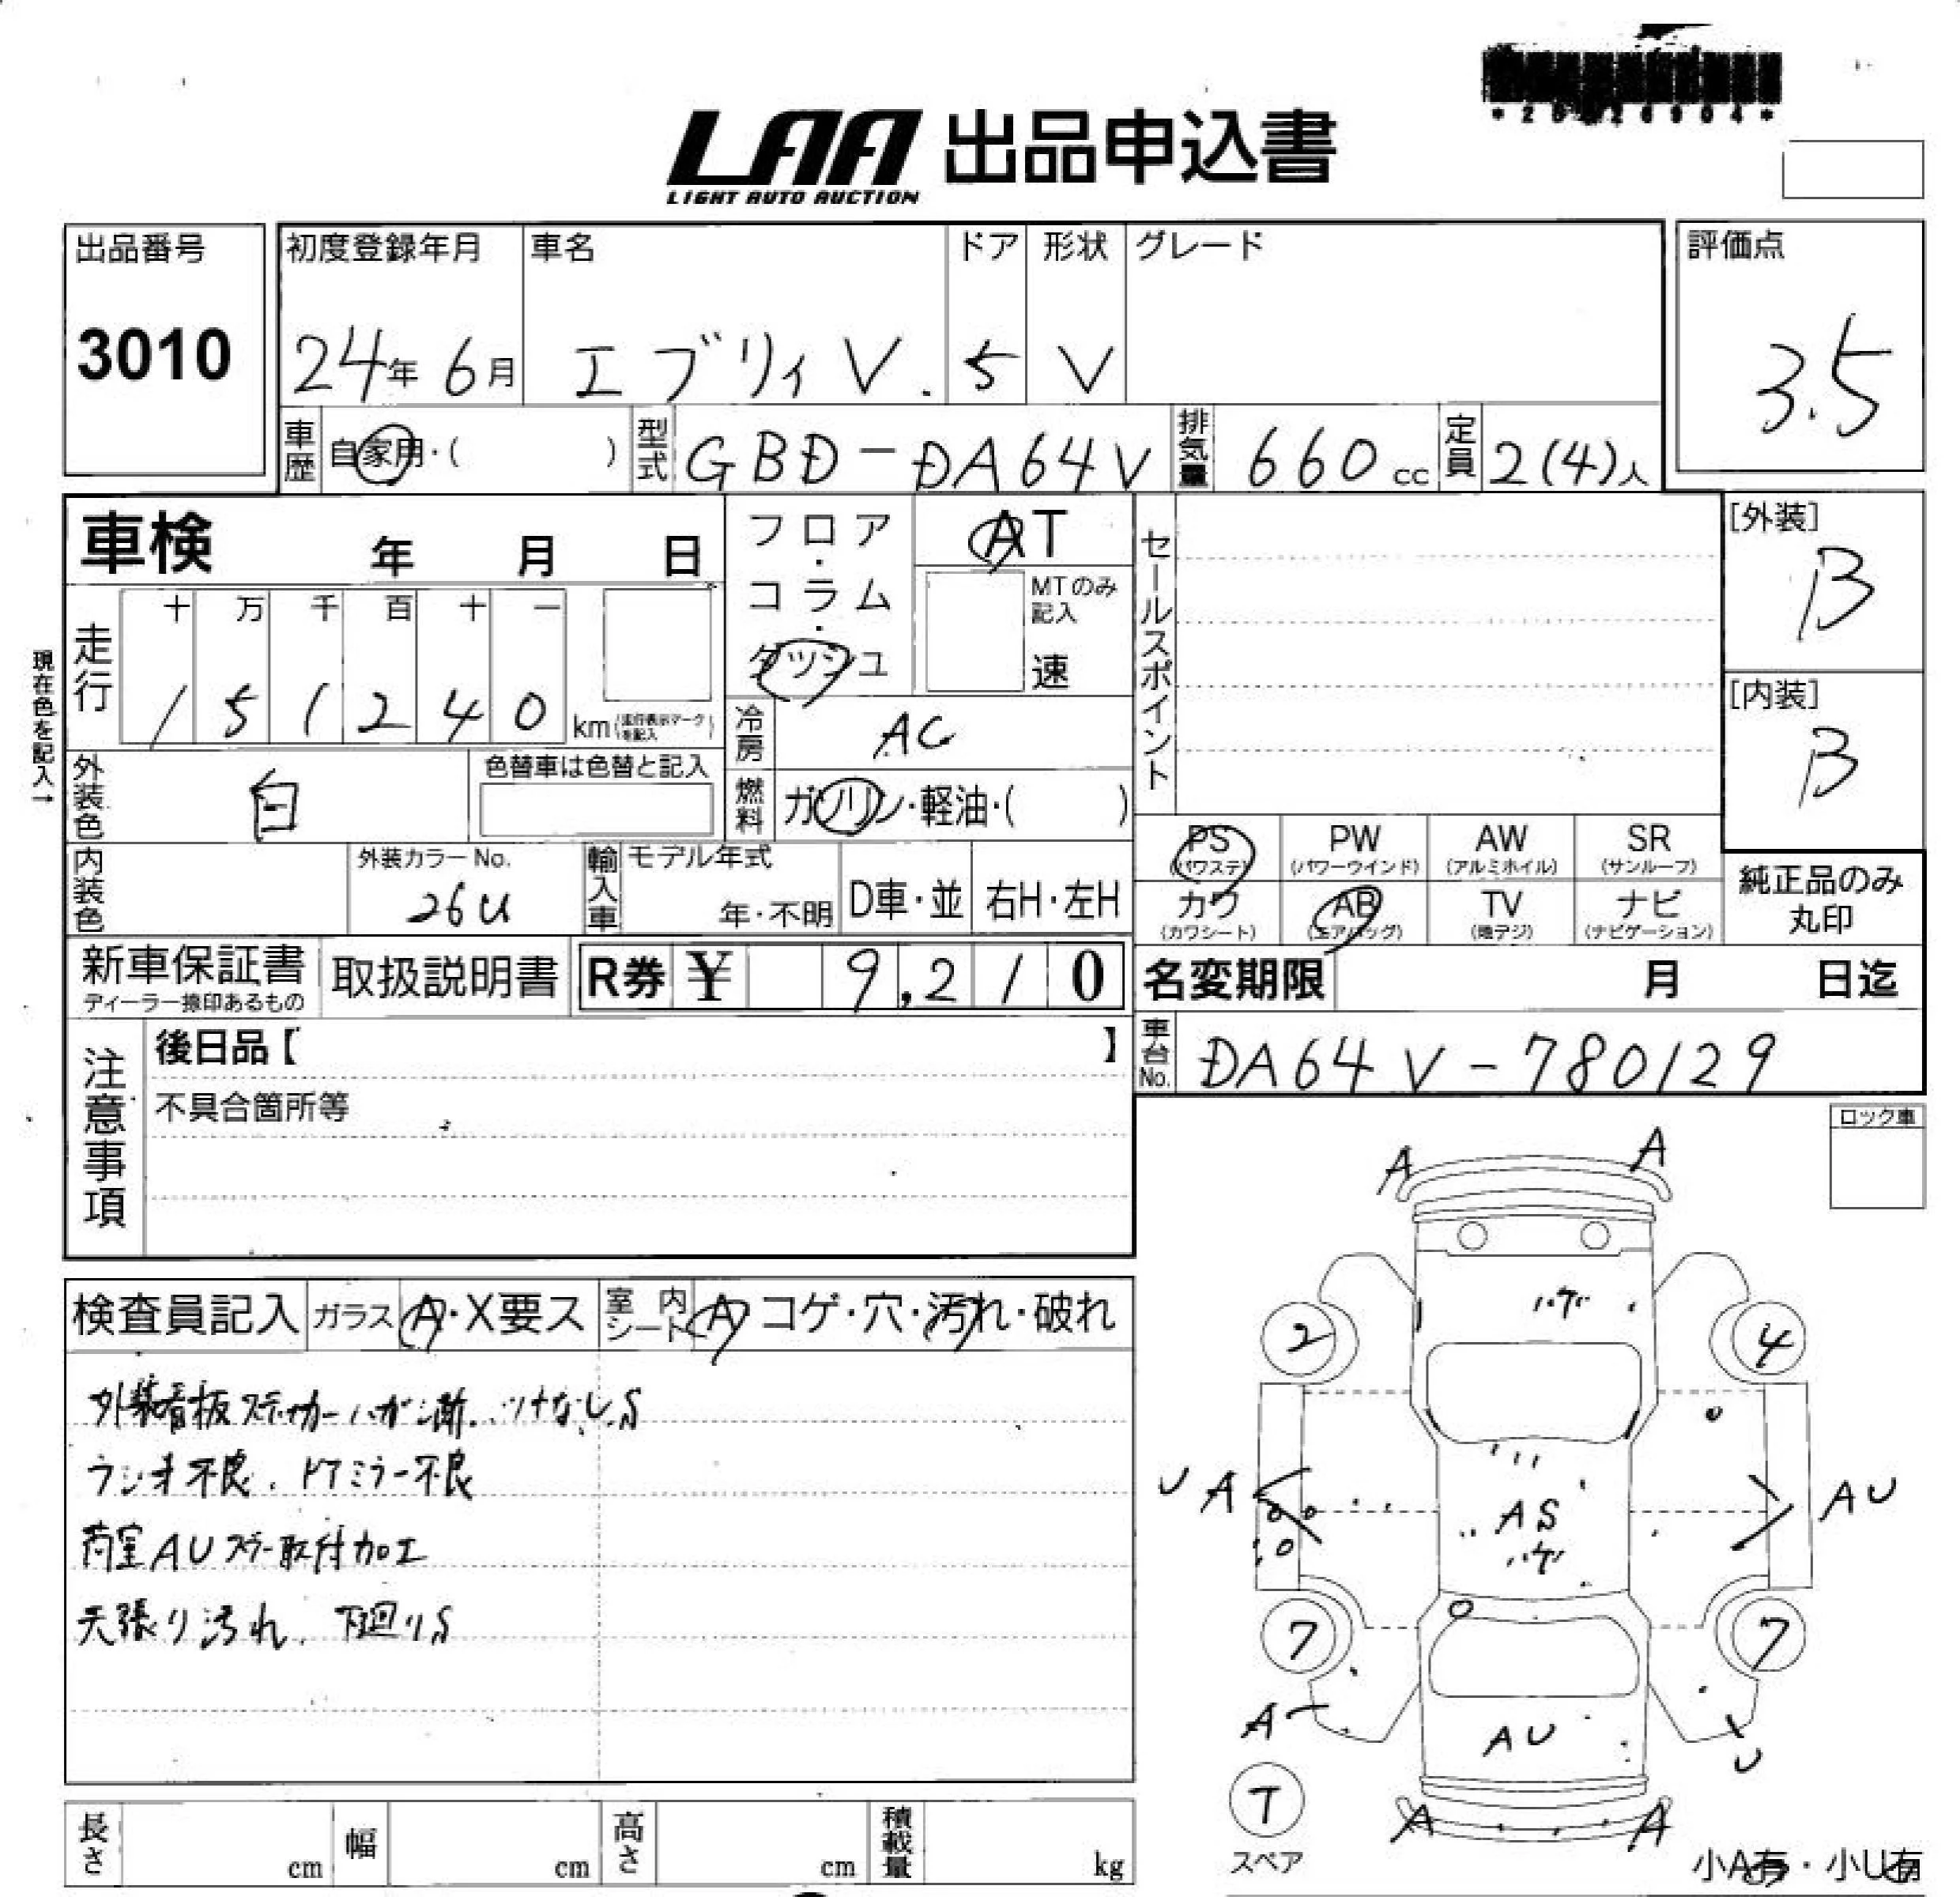 LAA 出品申込書
LIGHT AUTO AUCTION
出品番号
3010
初度登録年月
24年 6月
車名
エブリィ V.
ドア
5
形状
V
グレード
評価点
3.5
車歴
自家用・( )
型式
GBD-DA64V
排気量
660cc
定員
2(4)人
車検 年 月 日
フロア・コラム・ダッシュ
AT
MTのみ記入
速
セールスポイント
[外装]
B
[内装]
B
現在色を記入→
走行
十 万 千 百 十 一
1 5 1 2 4 0 km(走行表示マークを記入)
冷房
AC
外装色
白
色替車は色替と記入
燃料
ガソリン・軽油・( )
内装色
外装カラーNo.
26U
輸入車
モデル年式
年・不明
D車・並
右H・左H
PS (パワステ) PW (パワーウインド) AW (アルミホイル) SR (サンルーフ)
カワ (カワシート) AB (エアバッグ) TV (地デジ) ナビ (ナビゲーション)
純正品のみ丸印
新車保証書
ディーラー捺印あるもの
取扱説明書
R券 ¥ 9,210
名変期限 月 日迄
注意事項
後日品【 】
不具合箇所等
車台No.
DA64V-780129
ロック車
検査員記入
ガラス A・X要ス
室内シート A コゲ・穴・汚れ・破れ
外装看板ステッカーハガシ跡.
ラジオ不良. ドアミラー不良
荷室AU
取付加工
天張り汚れ. 下廻りS
A A
ハゲ
2 4
U A
AU
AS
ハゲ
7 7
A
AU
U
T
スペア
A A
小A有・小U有
長さ cm
幅 cm
高さ cm
積載量 kg